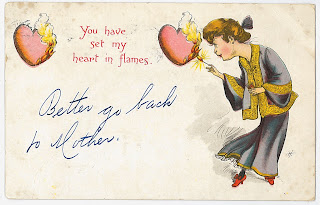 You have
set my
heart in flames.
Better go back
to Mother.